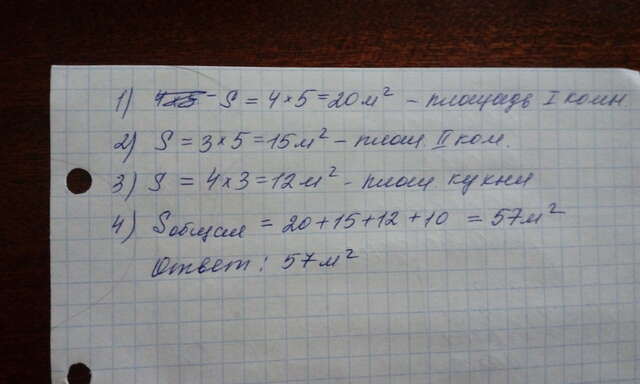 1) S = 4×5=20м² – площадь I комн
2) S = 3×5=15м² – площ. II ком.
3) S = 4×3=12м² – площ. кухни
4) Sобщая = 20+15+12+10 = 57м²
Ответ: 57м²